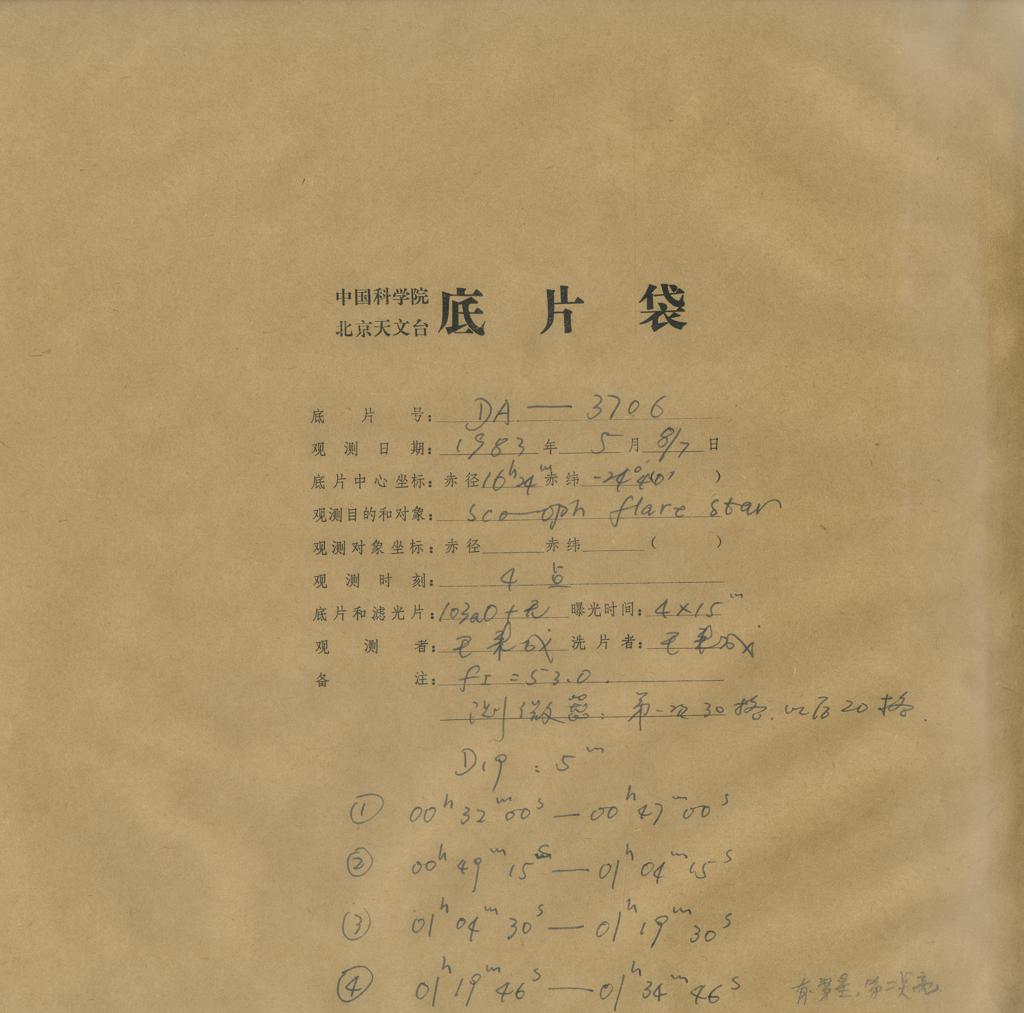 中国科学院
北京天文台
底片袋
底片号: DA — 3706
观测日期: 1983年 5月 8/7日
底片中心坐标: 赤径 16ʰ24ᵐ 赤纬 -24°40′ )
观测目的和对象: Sco-oph flare star
观测对象坐标: 赤径 赤纬 ( )
观测时刻: 4点
底片和滤光片: 103aO+无 曝光时间: 4×15ᵐ
观测者: 洗片者:
备注: fr = 53.0.
测微器: 第一次30格. 以后20格.
D19 : 5ᵐ
① 00ʰ32ᵐ00ˢ — 00ʰ47ᵐ00ˢ
② 00ʰ49ᵐ15ˢ — 01ʰ04ᵐ15ˢ
③ 01ʰ04ᵐ30ˢ — 01ʰ19ᵐ30ˢ
④ 01ʰ19ᵐ46ˢ — 01ʰ34ᵐ46ˢ
有 星, 第二点亮